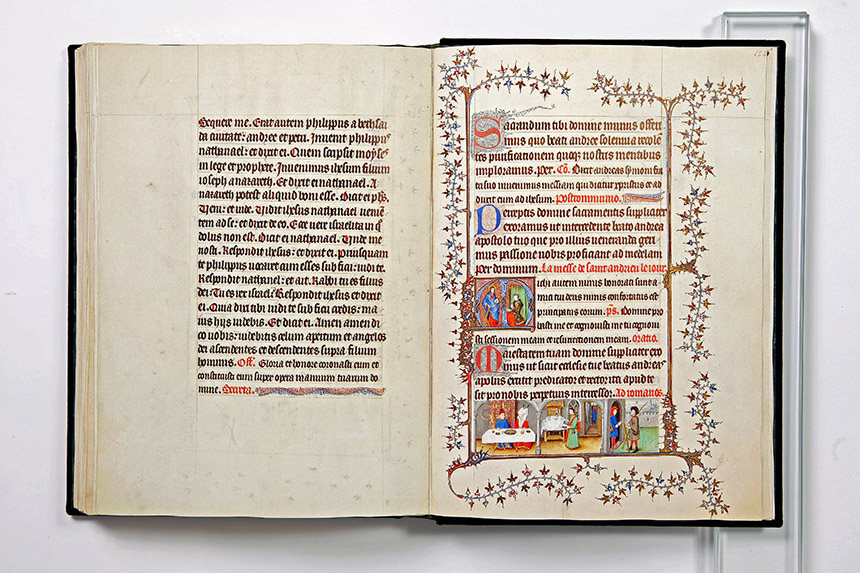 Sequere me. Erat autem philippus a bethsai
da ciuitate: andree et petri. Inuenit philippus
nathanael: et dixit ei. Quem scripsit moyses
in lege et prophete. Inuenimus ihesum filium
ioseph a nazareth. Et dixit ei nathanael. A
nazareth potest aliquid boni esse. Dicit ei phs.
Veni: et vide. Vidit ihesus nathanael
tem ad se: et dixit de eo. Ecce vere israelita in q
dolus non est. Dicit ei nathanael. Unde me
nosti. Respondit ihesus: et dixit ei. Priusquam
te philippus vocaret cum esses sub ficu: uidi te.
Respondit ei nathanael: et ait. Rabbi tu es filius
dei: Tu es rex israel. Respondit ihesus et dixit
ei. Quia dixi tibi uidi te sub ficu credis: ma
ius hijs uidebis. Et dicit ei. Amen amen di
co uobis: uidebitis celum apertum et angelos
dei ascendentes et descendentes supra filium
hominis. Off. Gloria et honore coronasti eum et
constituisti eum super opera manuum tuarum do
mine. Secreta.
Sacrandum tibi domine munus offeri
mus quo beati andree solennia recolen
tes purificationem quoque nostris mentibus
imploramus. Per. Co. Dicit andreas symoni fra
tri suo inuenimus messiam qui dicitur xpristus et ad
duxit eum ad ihesum. Postcommunio.
Perceptis domine sacramentis suppliciter
exoramus ut intercedente beato andrea
apostolo tuo que pro illius veneranda geri
mus passione nobis proficiant ad medelam
per dominum. La messe de saint andrieu le iour
ichi autem nimis honorati sunt a
mici tui deus nimis confortatus est
principatus eorum. ps. Domine pro
basti me et cognouisti me tu cognoui
sti sessionem meam et resurrectionem meam. oratio.
Maiestatem tuam domine suppliciter exo
ramus ut sicut ecclesie tue beatus andreas
aplus extitit predicator et rector ita apud te
sit pro nobis perpetuus intercessor. Ad romanos